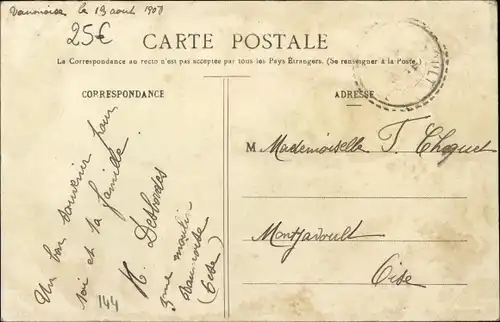 Vaumoise le 19 aout 1907
25€
CARTE POSTALE
La Correspondance au recto n'est pas acceptée par tous les Pays Étrangers. (Se renseigner à la Poste.)
CORRESPONDANCE
Un bon souvenir pour
toi et ta famille.
H. Desbordes
Vaumoise
(Oise)
144
ADRESSE
M. Mademoiselle T. Choquet
Montjavoult
Oise